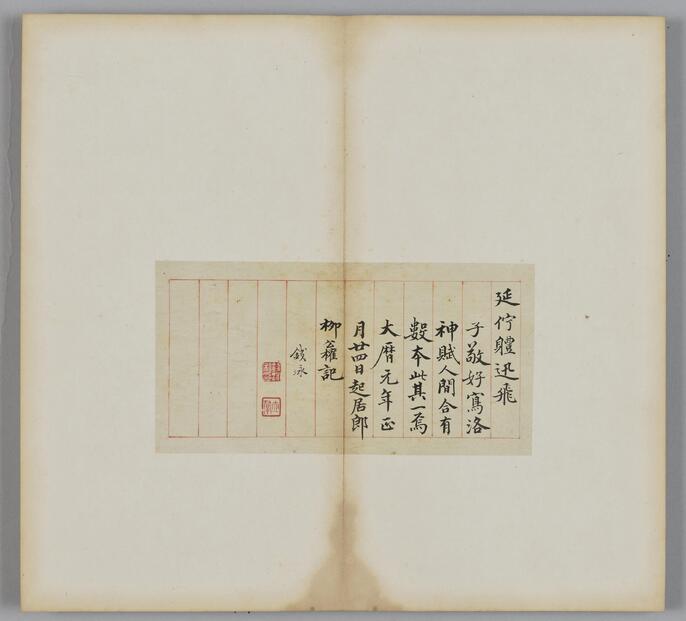 延佇體迅飛
子敬好寫洛
神賦人間合有
數本此其一焉
大曆元年正
月廿四日起居郎
柳公權記
錢泳